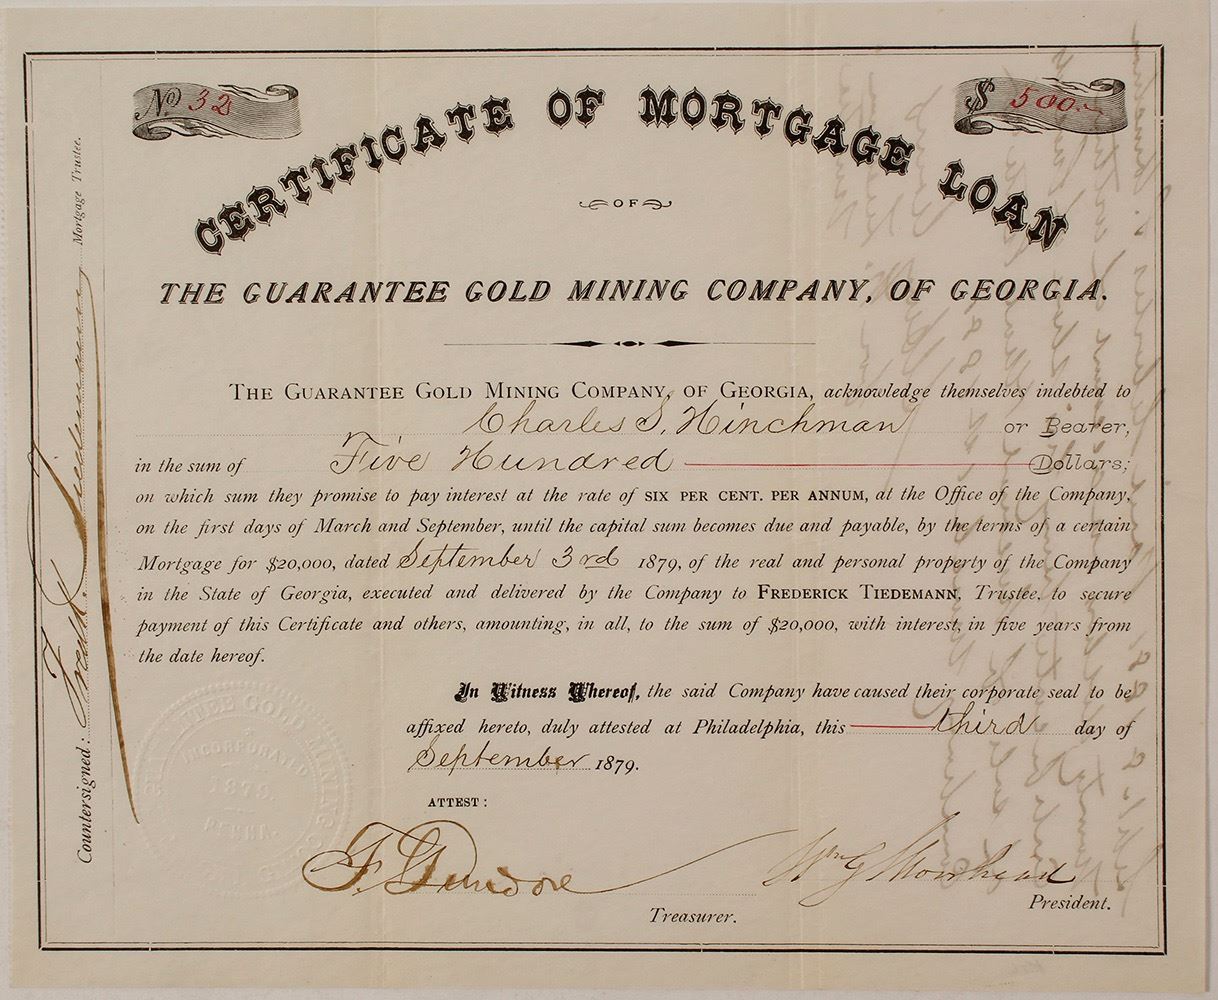 No 32
$ 500.-
CERTIFICATE OF MORTGAGE LOAN
OF
THE GUARANTEE GOLD MINING COMPANY, OF GEORGIA.
THE GUARANTEE GOLD MINING COMPANY, OF GEORGIA, acknowledge themselves indebted to
Charles S. Hinchman or Bearer,
in the sum of Five Hundred Dollars;
on which sum they promise to pay interest at the rate of SIX PER CENT. PER ANNUM, at the Office of the Company,
on the first days of March and September, until the capital sum becomes due and payable, by the terms of a certain
Mortgage for $20,000, dated September 3rd 1879, of the real and personal property of the Company
in the State of Georgia, executed and delivered by the Company to FREDERICK TIEDEMANN, Trustee, to secure
payment of this Certificate and others, amounting, in all, to the sum of $20,000, with interest, in five years from
the date hereof.
In Witness Whereof, the said Company have caused their corporate seal to be
affixed hereto, duly attested at Philadelphia, this third day of
September 1879.
ATTEST:
Wm G Moorhead
Treasurer.
President.
Countersigned: Fredk Tiedemann Mortgage Trustee.
GUARANTEE GOLD MINING CO
INCORPORATED
1879.
PENNA.